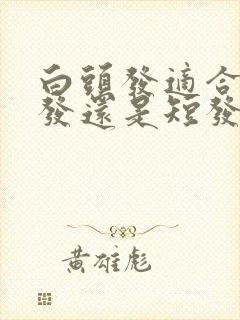 白頭發適合
發還是短發
黃雄彪